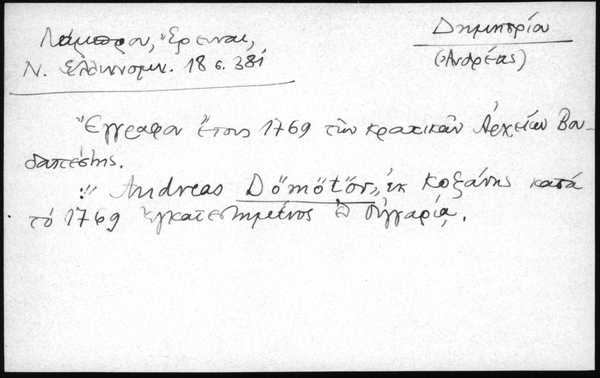 Λάμπρου, Ἔρευναι,
Ν. Ἑλληνομν. 18 σ. 381
Δημητρίου
(Ἀνδρέας)
Ἔγγραφον ἔτους 1769 τῶν κρατικῶν Ἀρχείων Βου-
δαπέστης.
:" Andreas Dömötör", ἐκ Κοζάνης κατὰ
τὸ 1769 ἐγκατεστημένος ἐν Οὑγγαρίᾳ.